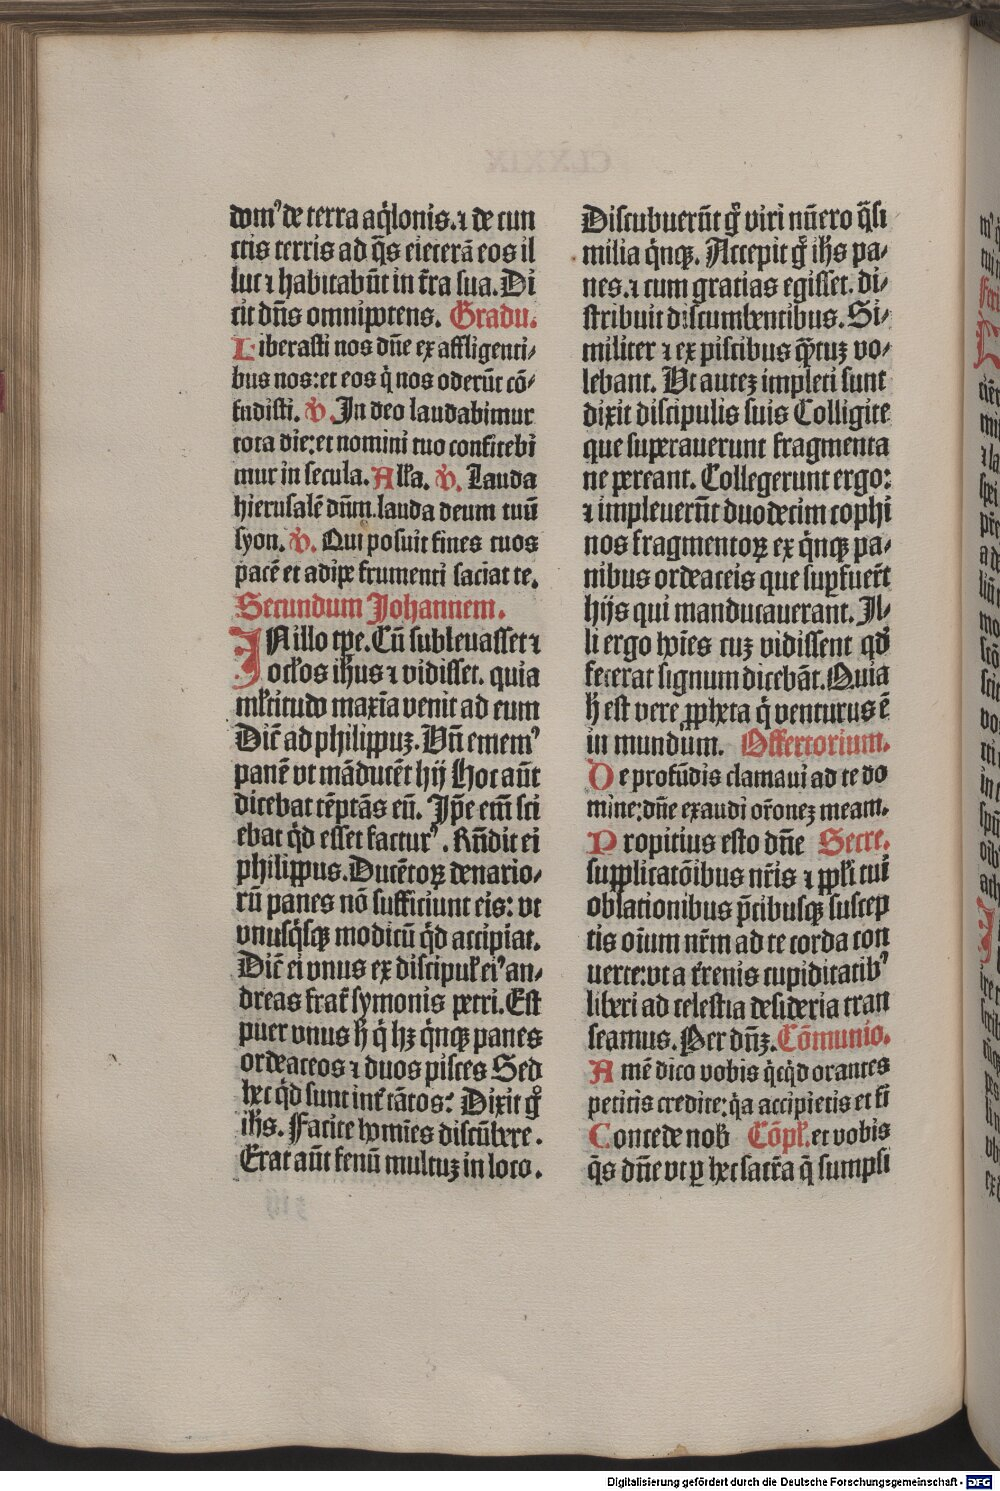 domꝰ de terra aq̇lonis.⁊ de cun
ctis terris ad q̄s eieterā eos il
luc ⁊ habitabūt in t̄ra sua. Di
cit dn̄s omnipotens. Gradu.
Liberasti nos dn̄e ex affligenti⸗
bus nos:et eos q̇ nos oderūt cō⸗
fudisti. V. In deo laudabimur
tota die:et nomini tuo confitebi
mur in secula. Alła. V. Lauda
hierusalē dn̄m.lauda deum tuū
syon. V. Qui posuit fines tuos
pacē et adipe frumenti saciat te.
Secundum Johannem.
IN illo tp̄e. Cū subleuasset ⁊
ocƚos ih̄us ⁊ vidisset. quia
mƚtitudo maxīa venit ad eum
Dic̄ ad philippuꝫ. Vn̄ ememꝰ
panē vt māducēt hij Hoc aūt
dicebat tēptās eū. Ip̄e em̄ sci
ebat q̇d esset facturꝰ. Rn̄dit ei
philippus. Ducētoꝝ denario⸗
rū panes nō sufficiunt eis: vt
vnusq̇sqꝫ modicū q̇d accipiat.
Dic̄ ei vnus ex discipuƚ eiꝰ an⸗
dreas frat̄ symonis petri. Est
puer vnus h̄ q̇ hꝫ q̇nqꝫ panes
ordeaceos ⁊ duos pisces Sed
hec q̇d sunt int̄ tātos? Dixit g̊
ih̄s. Facite homīes discūbere.
Erat aūt fenū multuꝫ in loco.
Discubuerūt g̊ viri nūero q̄si
milia q̇nqꝫ. Accepit g̊ ih̄s pa⸗
nes.⁊ cum gratias egisset. di⸗
stribuit discumbentibus. Si⸗
militer ⁊ ex piscibus q̄ꝫtuꝫ vo⸗
lebant. Vt auteꝫ impleti sunt
dixit discipulis suis Colligite
que superauerunt fragmenta
ne pereant. Collegerunt ergo:
⁊ impleuerūt duodecim cophi
nos fragmentoꝝ ex q̇nqꝫ pa⸗
nibus ordeaceis que suꝑfuer̄t
hijs qui manducauerant. Il⸗
li ergo hoīes cuꝫ vidissent qd̄
fecerat signum dicebāt. Quia
h̄ est vere ꝓpheta q̇ venturus ē
in mundum. Offertorium.
De profūdis clamaui ad te do
mine:dn̄e exaudi or̄oneꝫ meam.
Propitius esto dn̄e Secre.
supplicatōibus nr̄is ⁊ ppƚi tui
oblationibus p̄cibusqꝫ suscep
tis oīum nr̄m ad te corda con
uerte:vt a t̄renis cupiditatibꝰ
liberi ad celestia desideria tran
seamus. Per dn̄ꝫ. Cōmunio.
Amē dico vobis q̇cq̇d orantes
petitis credite:q̇a accipietis et fi
Concede nob̄ Cōpƚ. et vobis
q̄s dn̄e vt ꝑ hec sacr̄a q̇ sumpsi